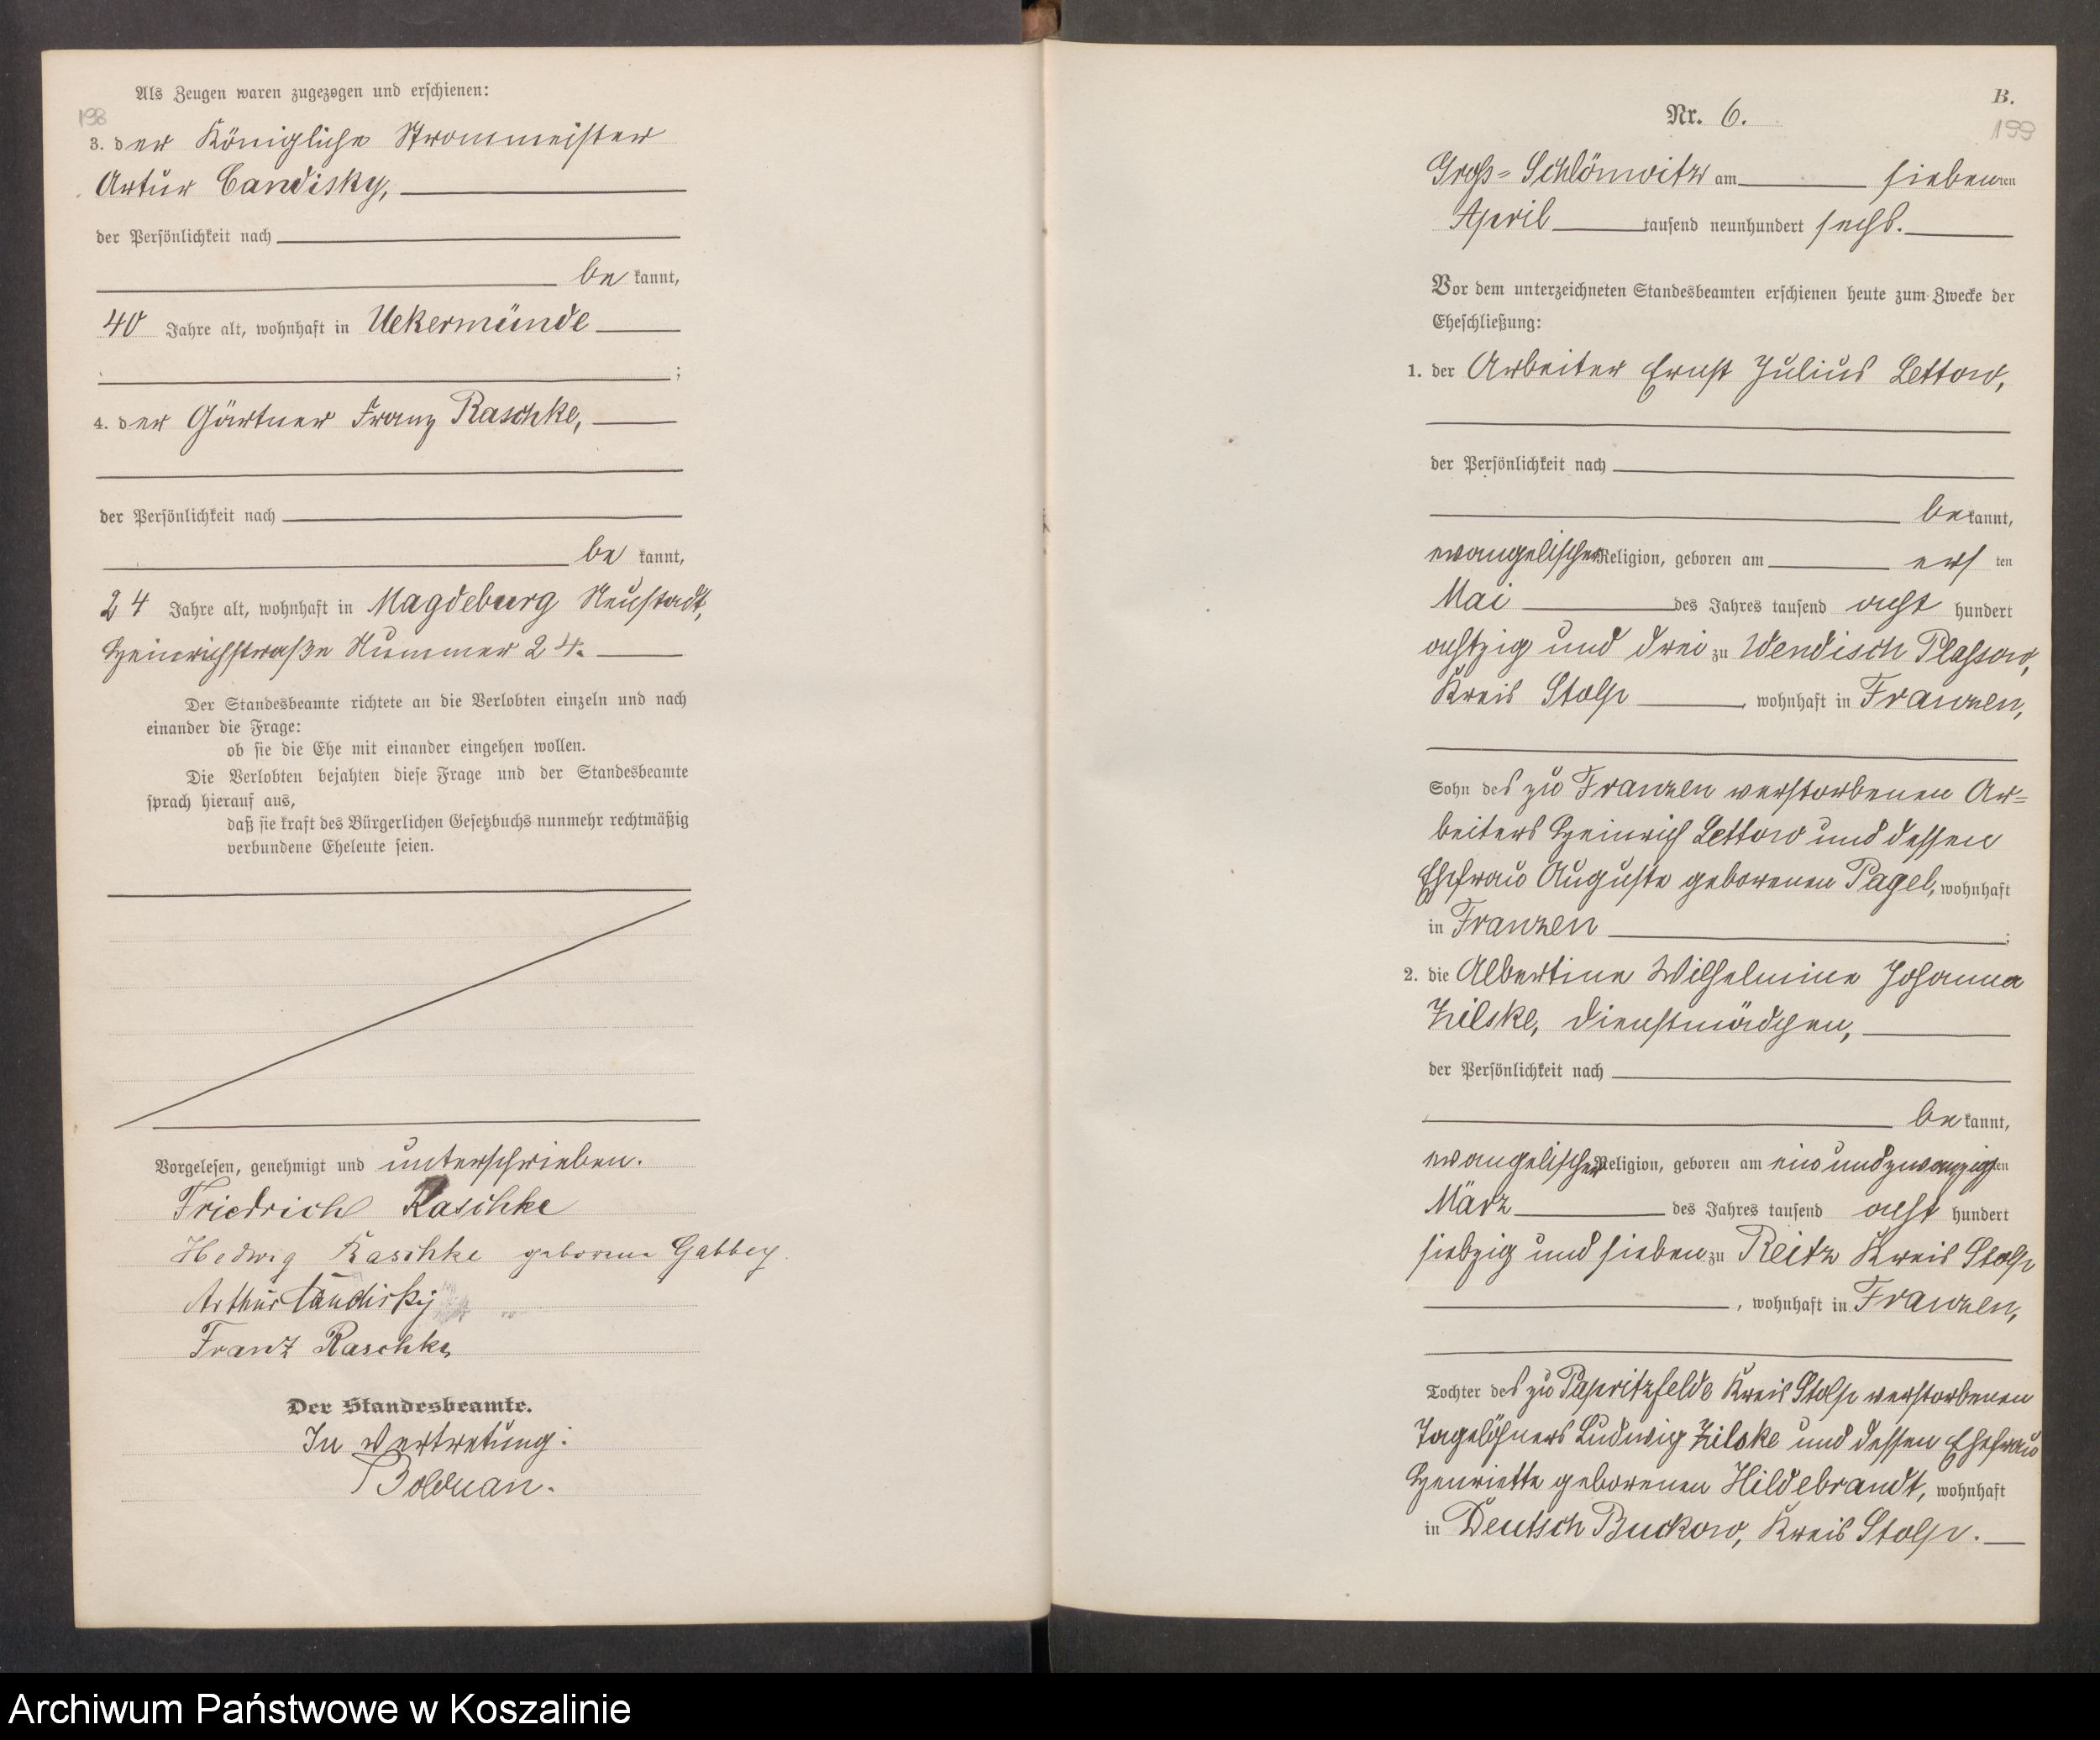 Als Zeugen waren zugezogen und erschienen:
198
3. der Königliche Strommeister
Artur Candisky,
der Persönlichkeit nach
be kannt,
40 Jahre alt, wohnhaft in Uekermünde
;
4. der Gärtner Franz Raschke,
der Persönlichkeit nach
be kannt,
24 Jahre alt, wohnhaft in Magdeburg Neustadt,
Heinrichstraße Nummer 24.
Der Standesbeamte richtete an die Verlobten einzeln und nach
einander die Frage:
ob sie die Ehe mit einander eingehen wollen.
Die Verlobten bejahten diese Frage und der Standesbeamte
sprach hierauf aus,
daß sie kraft des Bürgerlichen Gesetzbuchs nunmehr rechtmäßig
verbundene Eheleute seien.
Vorgelesen, genehmigt und unterschrieben.
Friedrich Raschke
Hedwig Raschke geborene Gabbey.
Arthur Candisky
Franz Raschke
Der Standesbeamte.
In Vertretung:
Bolduan.
B.
Nr. 6.
199
Groß-Schlönwitz am siebenten
April tausend neunhundert sechs.
Vor dem unterzeichneten Standesbeamten erschienen heute zum Zwecke der
Eheschließung:
1. der Arbeiter Ernst Julius Lettow,
der Persönlichkeit nach
be kannt,
evangelischer Religion, geboren am ers ten
Mai des Jahres tausend acht hundert
achtzig und drei zu Wendisch Plassow,
Kreis Stolp, wohnhaft in Franzen,
Sohn des zu Franzen verstorbenen Ar-
beiters Heinrich Lettow und dessen
Ehefrau Auguste geborenen Pagel, wohnhaft
in Franzen ;
2. die Albertine Wilhelmine Johanna
Zilske, Dienstmädchen,
der Persönlichkeit nach
be kannt,
evangelischer Religion, geboren am einundzwanzigsten
März des Jahres tausend acht hundert
siebzig und sieben zu Reitz Kreis Stolp
, wohnhaft in Franzen,
Tochter des zu Papritzfelde Kreis Stolp verstorbenen
Tagelöhners Ludwig Zilske und dessen Ehefrau
Henriette geborenen Hildebrandt, wohnhaft
in Deutsch Buckow, Kreis Stolp.
Archiwum Państwowe w Koszalinie